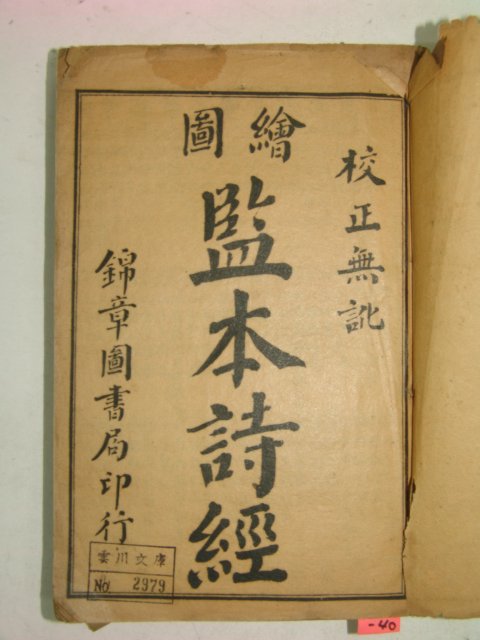 校正無訛
繪圖
監本詩經
錦章圖書局印行
雲川文庫
No 2979
-40